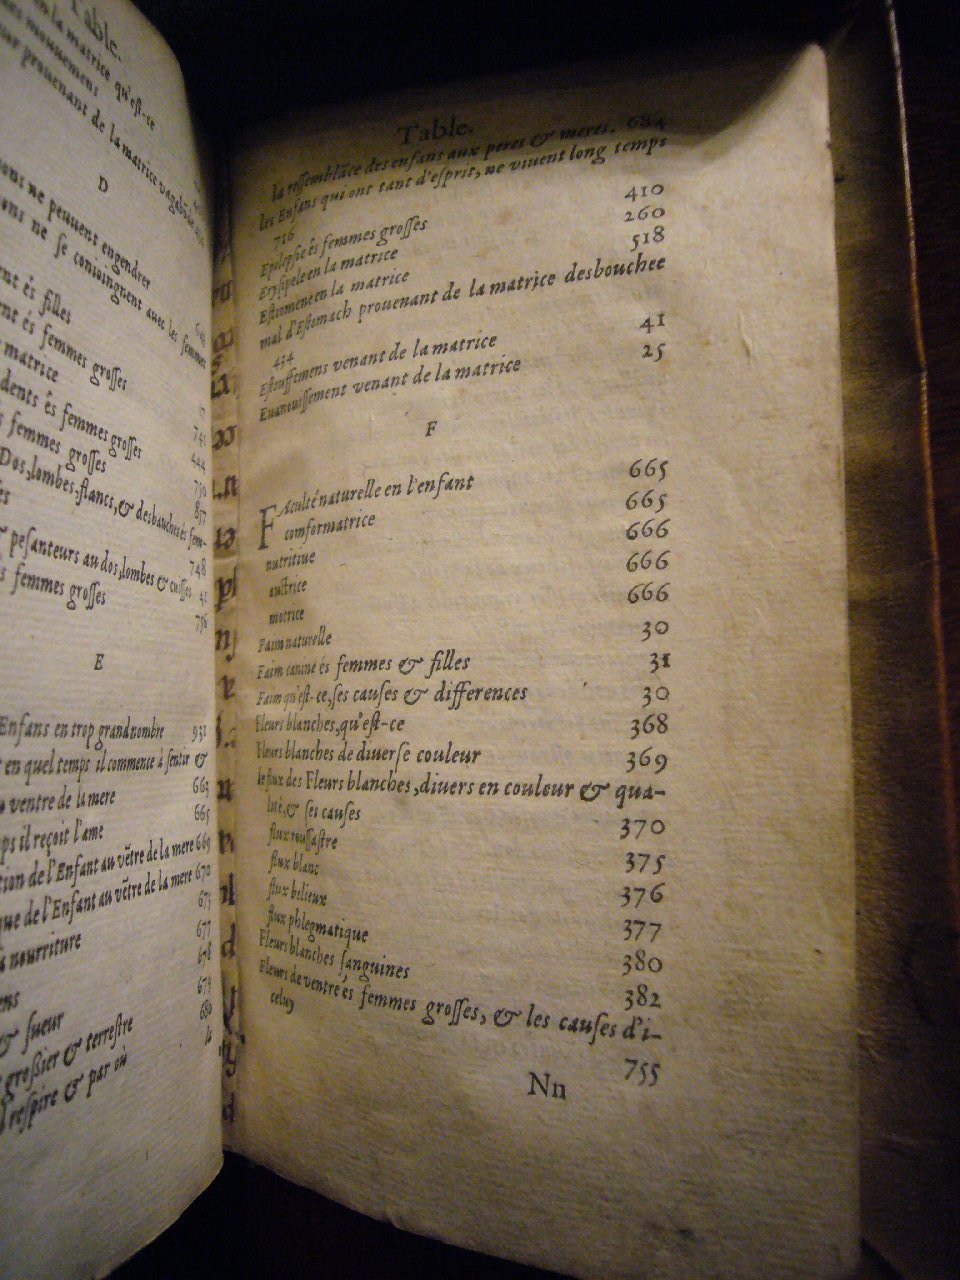 Table.
en la matrice qu'est-ce
mouuemens
prouenant de la matrice vagabūde
D
ne peuuent engendrer
ons ne se conioingnent auec les femmes
ent és filles
nt és femmes grosses
matrice
dents ês femmes grosses 741
s femmes grosses 444
750
Dos, lombes, flancs, & desbauches ês fem-
857
pesanteurs au dos, lombes & cuisses
748
s femmes grosses 41
756
E
Enfans en trop grand nombre 931
t en quel temps il commence à sentir &
ventre de la mere 663
ps il reçoit l'ame 665
tion de l'Enfant au vẽtre de la mere 669
que de l'Enfant au vẽtre de la mere 670
nourriture 677
678
& sueur 679
grossier & terrestre 680
respire & par où
la
Table.
la ressemblãce des enfans aux peres & meres. 684
les Enfans qui ont tant d'esprit, ne viuent long temps
716
Epilepsie ês femmes grosses 410
Erysipele en la matrice 260
Estiomene en la matrice 518
mal d'Estomach prouenant de la matrice desbouchee
434
Estouffemens venant de la matrice 41
Euanouissement venant de la matrice 25
F
FAculté naturelle en l'enfant 665
comformatrice 665
nutritiue 666
auctrice 666
motrice 666
Faim naturelle 30
Faim canine és femmes & filles 31
Faim qu'est-ce, ses causes & differences 30
Fleurs blanches, qu'est-ce 368
Fleurs blanches de diuerse couleur 369
le flux des Fleurs blanches, diuers en couleur & qua-
lité, & ses causes 370
flux roussastre 375
flux blanc 376
flux bilieux 377
flux phlegmatique 380
Fleurs blanches sanguines 382
Fleurs de ventre és femmes grosses, & les causes d'i-
celuy 755
Nn